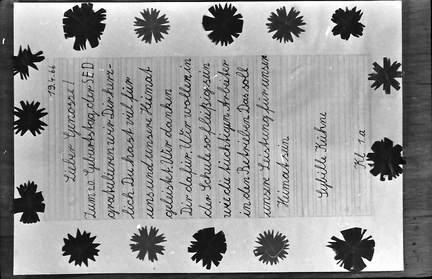 19.4.66
Lieber Genosse!
Zum 20. Geburtstag der SED
gratulieren wir Dir herz-
lich. Du hast viel für
uns und unsere Heimat
geleistet. Wir danken
Dir dafür. Wir wollen in
der Schule so fleißig sein
wie die tüchtigen Arbeiter
in den Betrieben. Das soll
unsere Leistung für unsere
Heimat sein.
Sybille Kühne
Kl. 1a